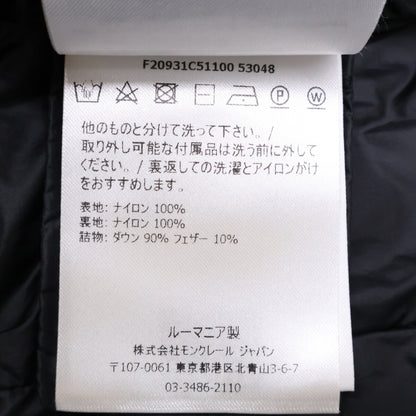 F20931C51100 53048
他のものと分けて洗って下さい。/
取り外し可能な付属品は洗う前に外して
ください。/ 裏返しての洗濯とアイロンがけ
をおすすめします。
表地: ナイロン 100%
裏地: ナイロン 100%
詰物: ダウン 90% フェザー 10%
ルーマニア製
株式会社モンクレール ジャパン
〒107-0061 東京都港区北青山3-6-7
03-3486-2110